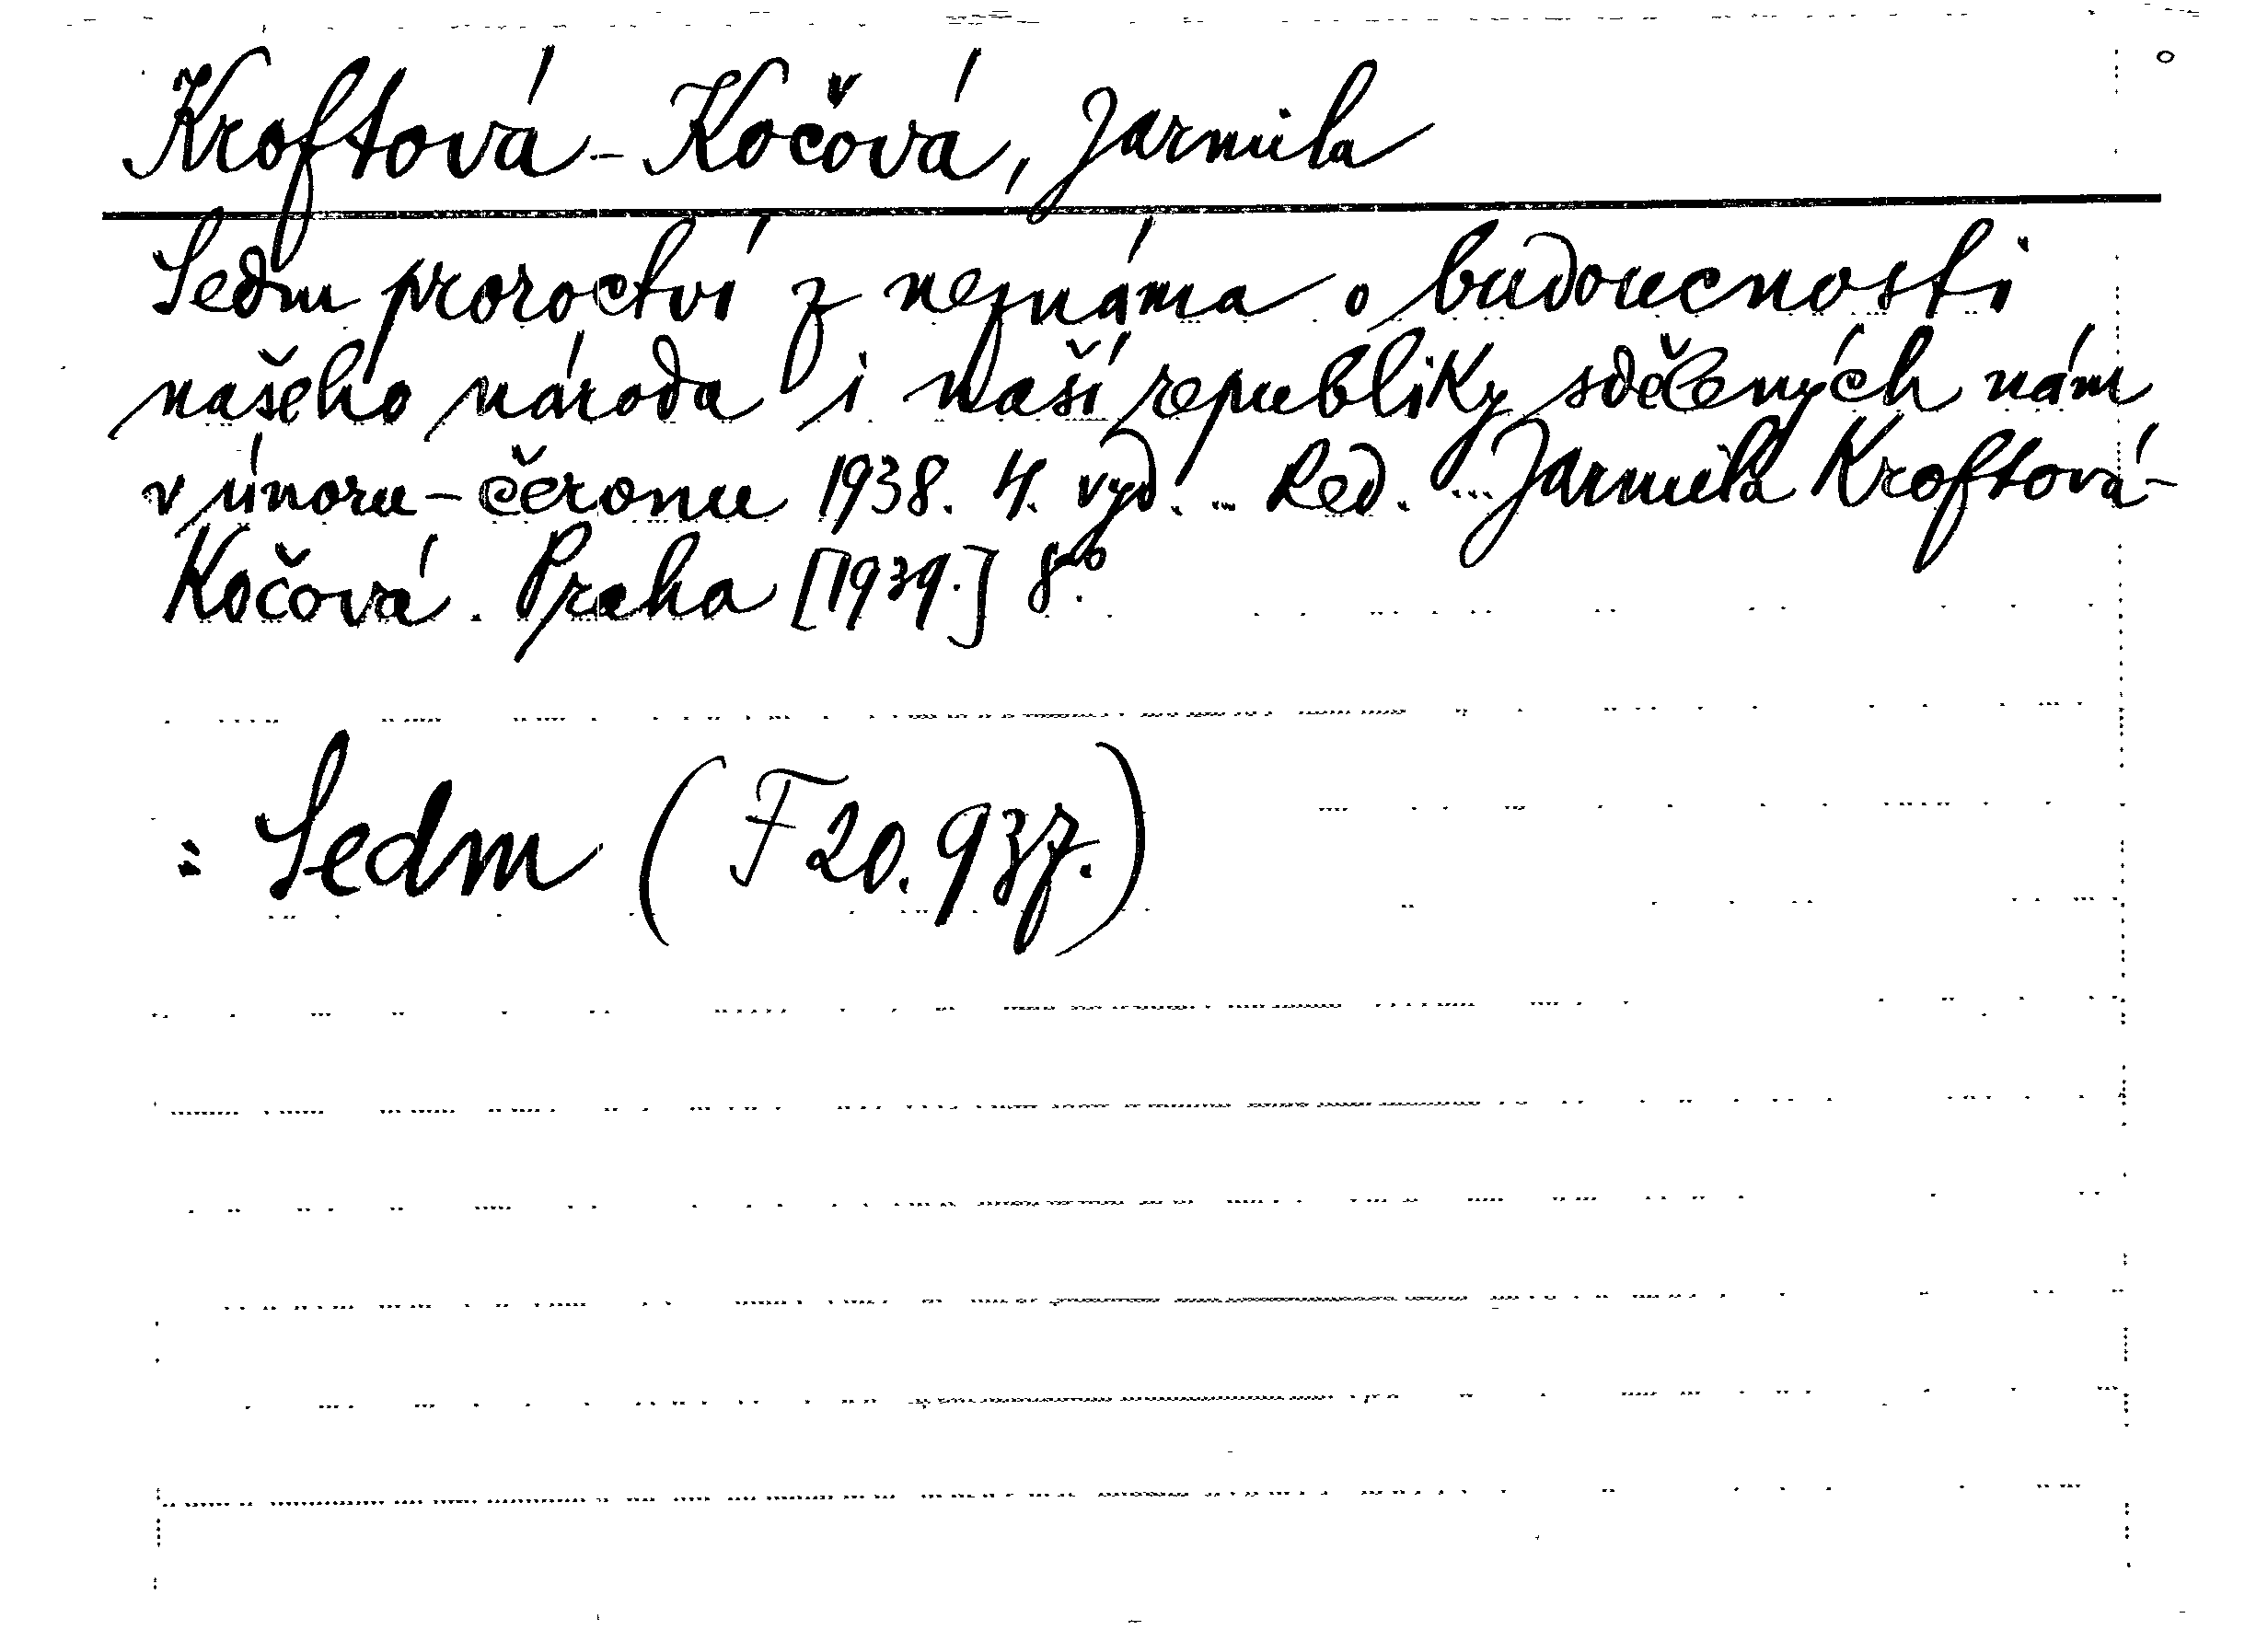 Kroftová-Kočová, Jarmila
Sedm proroctví z neznáma o budoucnosti
našeho národa i naší republiky sdělených nám
v únoru-červnu 1938. 4. vyd. ... Red. ... Jarmila Kroftová-
Kočová. Praha [1939.] 8°.
: Sedm (F 20.937.)